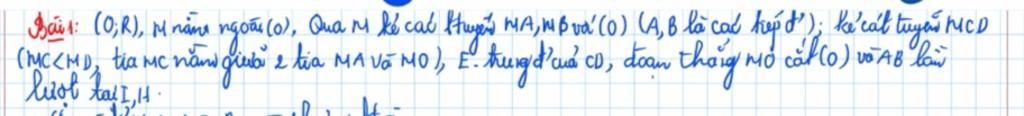 Bài 1: (O;R), M nằm ngoài (O), Qua M kẻ các t/tuyến MA, MB với (O) (A, B là các tiếp đ'); kẻ cát tuyến MCD
(MC<MD, tia MC nằm giữa 2 tia MA và MO), E- trung đ' của CD, đoạn thẳng MO cắt (O) và AB lần
lượt tại I, H.